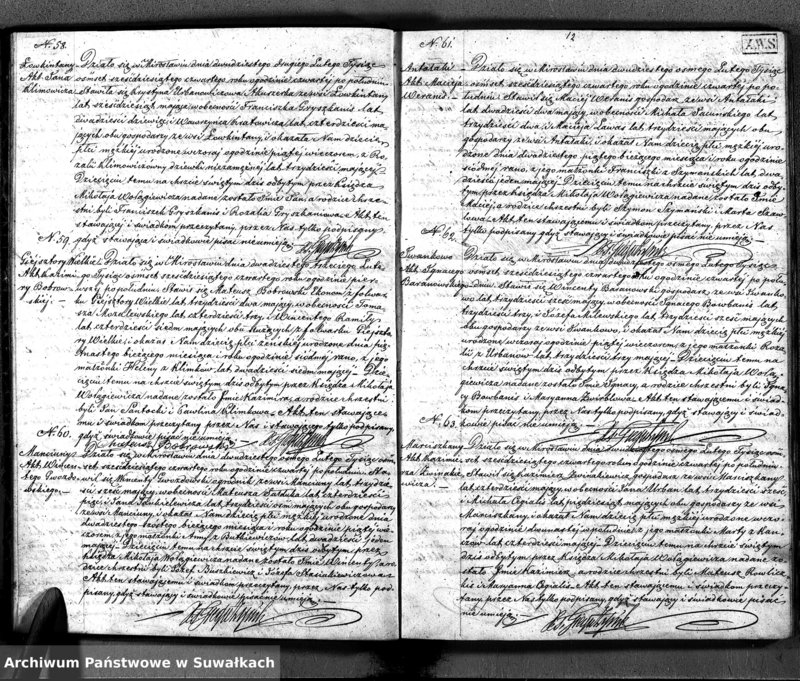 No 58.
Łowkintany
Akt Jana
Klimowicza
Działo się w Mirosławiu dnia dwudziestego drugiego Lutego Tysiąc
ośmset sześćdziesiątego czwartego roku o godzinie czwartej po południu
Stawiła się Krystyna Urbanowiczowa Akuszerka ze wsi Łowkintany
lat sześćdziesiąt mająca w obecności Franciszka Gryszkanis lat
dwadzieścia dziewięć i Wawrzyńca lat czterdzieści ma
jących obu gospodarzy ze wsi Łowkintany, i okazała Nam dziecię
płci męzkiej urodzone wczoraj o godzinie piątej wieczorem, z Ro
zalii Klimowiczówny dziewki niezamężnej lat trzydzieści mającej
Dziecięciu temu na chrzcie świętym dziś odbytym przez Księdza
Mikołaja Wotagiewicza nadane zostało Imie Jan a rodzice chrze
stni byli Franciszek Gryszkanis i Rozalia Gryszkaniowa Akt ten
stawającej i świadkom przeczytany, przez Nas tylko podpisany
gdyż stawająca i świadkowie pisać nie umieją
No 59.
Giejsztory Wielkie
Akt Kazimi
ry Bobrow
skiej
Działo się w Mirosławiu dnia dwudziestego trzeciego Lute
go Tysiąc ośmset sześćdziesiątego czwartego roku o godzinie pier
wszej po południu Stawił się Mateusz Bobrowski Ekonom z folwar
ku Giejsztory Wielkie lat trzydzieści dwa mający, w obecności Toma
sza lat czterdzieści trzy, i Wincentego
lat czterdzieści siedm mających obu służących z folwarku Giejszto
ry Wielkie i okazał Nam dziecię płci żeńskiej urodzone dnia pię
tnastego bieżącego miesiąca i roku o godzinie siódmej rano, z jego
małżonki Heleny z Klimków lat dwadzieścia siedm mającej Dzie
cięciu temu na chrzcie świętym dziś odbytym przez Księdza Mikołaja
Wotagiewicza nadane zostało Imie Kazimira, a rodzice chrzestni
byli Jan Santocki i Ewelina Klimkowa Akt ten stawające
mu i świadkom przeczytany przez Nas i stawającego tylko podpisany
gdyż świadkowie pisać nie umieją
No 60.
Manciuny
Akt Wincen
tego Gwozdo
wskiego
Działo się w Mirosławiu dnia dwudziestego osmego Lutego Tysiąc ośm
set sześćdziesiątego czwartego roku o godzinie czwartej po południu Sta
wił się Wincenty Gwozdowski ogrodnik ze wsi Manciuny lat trzydzie
ści sześć mający w obecności Mateusza lat czterdzieści
pięć i Jana lat trzydzieści ośm mających obu gospodarzy
ze wsi Manciuny, i okazał Nam dziecię płci męzkiej urodzone dnia
dwudziestego szóstego bieżącego miesiąca i roku o godzinie piątej wie
czorem z jego małżonki Anny z Butkiewiczów lat dwadzieścia jeden
mającej Dziecięciu temu na chrzcie świętym dziś odbytym przez
Księdza Mikołaja Wotagiewicza nadane zostało Imie Wincenty a ro
dzice chrzestni byli Józef i Józefa Stasiukiewiczowa
Akt ten stawającemu i świadkom przeczytany, przez Nas tylko pod
pisany, gdyż stawający i świadkowie pisać nie umieją
12
X.W.S.
No 61.
Antałaki
Akt Macieja
Weranis
Działo się w Mirosławiu dnia dwudziestego osmego Lutego Tysiąc
ośmset sześćdziesiątego czwartego roku o godzinie czwartej po po
łudniu Stawił się Maciej Weranis gospodarz ze wsi Antałaki
lat dwadzieścia dwa mający, w obecności Michała lat
trzydzieści dwa, i Macieja lat trzydzieści mających obu
gospodarzy ze wsi Antałaki i okazał Nam dziecię płci męzkiej uro
dzone dnia dwudziestego piątego bieżącego miesiąca i roku o godzinie
siódmej rano, z jego małżonki Franciszki z Szymańskich lat dwa
dzieścia jeden mającej. Dziecięciu temu na chrzcie świętym dziś odby
tym przez Księdza Mikołaja Wotagiewicza nadane zostało Imie
Maciej a rodzice chrzestni byli Szymon Szymański i Marta
Akt ten stawającemu i świadkom przeczytany, przez Nas
tylko podpisany gdyż stawający i świadkowie pisać nie umieją
No 62.
Iwankowo
Akt Ignacego
Baranowskiego
Działo się w Mirosławiu dnia dwudziestego osmego Lutego Tysiąc
ośmset sześćdziesiątego czwartego roku o godzinie czwartej po połu
dniu Stawił się Wincenty Baranowski gospodarz ze wsi Iwanko
wo lat trzydzieści sześć mający, w obecności Ignacego lat
trzydzieści trzy, i Józefa Milewskiego lat trzydzieści mających
obu gospodarzy ze wsi Iwankowo, i okazał Nam dziecię płci męzkiej
urodzone wczoraj o godzinie piątej wieczorem, z jego małżonki Roza
lii z Urbanów lat trzydzieści trzy mającej. Dziecięciu temu na
chrzcie świętym dziś odbytym przez Księdza Mikołaja Wota
giewicza nadane zostało Imie Ignacy, a rodzice chrzestni byli Igna
cy i Maryanna Akt ten stawającemu i świad
kom przeczytany, przez Nas tylko podpisany, gdyż stawający i świad
kowie pisać nie umieją
No 63.
Marciszkany
Akt Kazimie
rza
Działo się w Mirosławiu dnia dwudziestego osmego Lutego Tysiąc ośm
set sześćdziesiątego czwartego roku o godzinie czwartej po połudn
iu Stawił się Kazimierz gospodarz ze wsi Marciszkany
lat czterdzieści mający, w obecności Jana Urban lat trzydzieści sześć
i Michała lat pięćdziesiąt mających obu gospodarzy ze wsi
Marciszkany, i okazał Nam dziecię płci męzkiej urodzone wczo
raj o godzinie dwunastej w południe z jego małżonki Marty z
lat czterdzieści mającej. Dziecięciu temu na chrzcie świętym
dziś odbytym przez Księdza Mikołaja Wotagiewicza nadane zo
stało Imie Kazimierz, a rodzice chrzestni byli Mateusz
i Maryanna Akt ten stawającemu i świadkom przeczy
tany, przez Nas tylko podpisany, gdyż stawający i świadkowie pisać
nie umieją
Archiwum Państwowe w Suwałkach